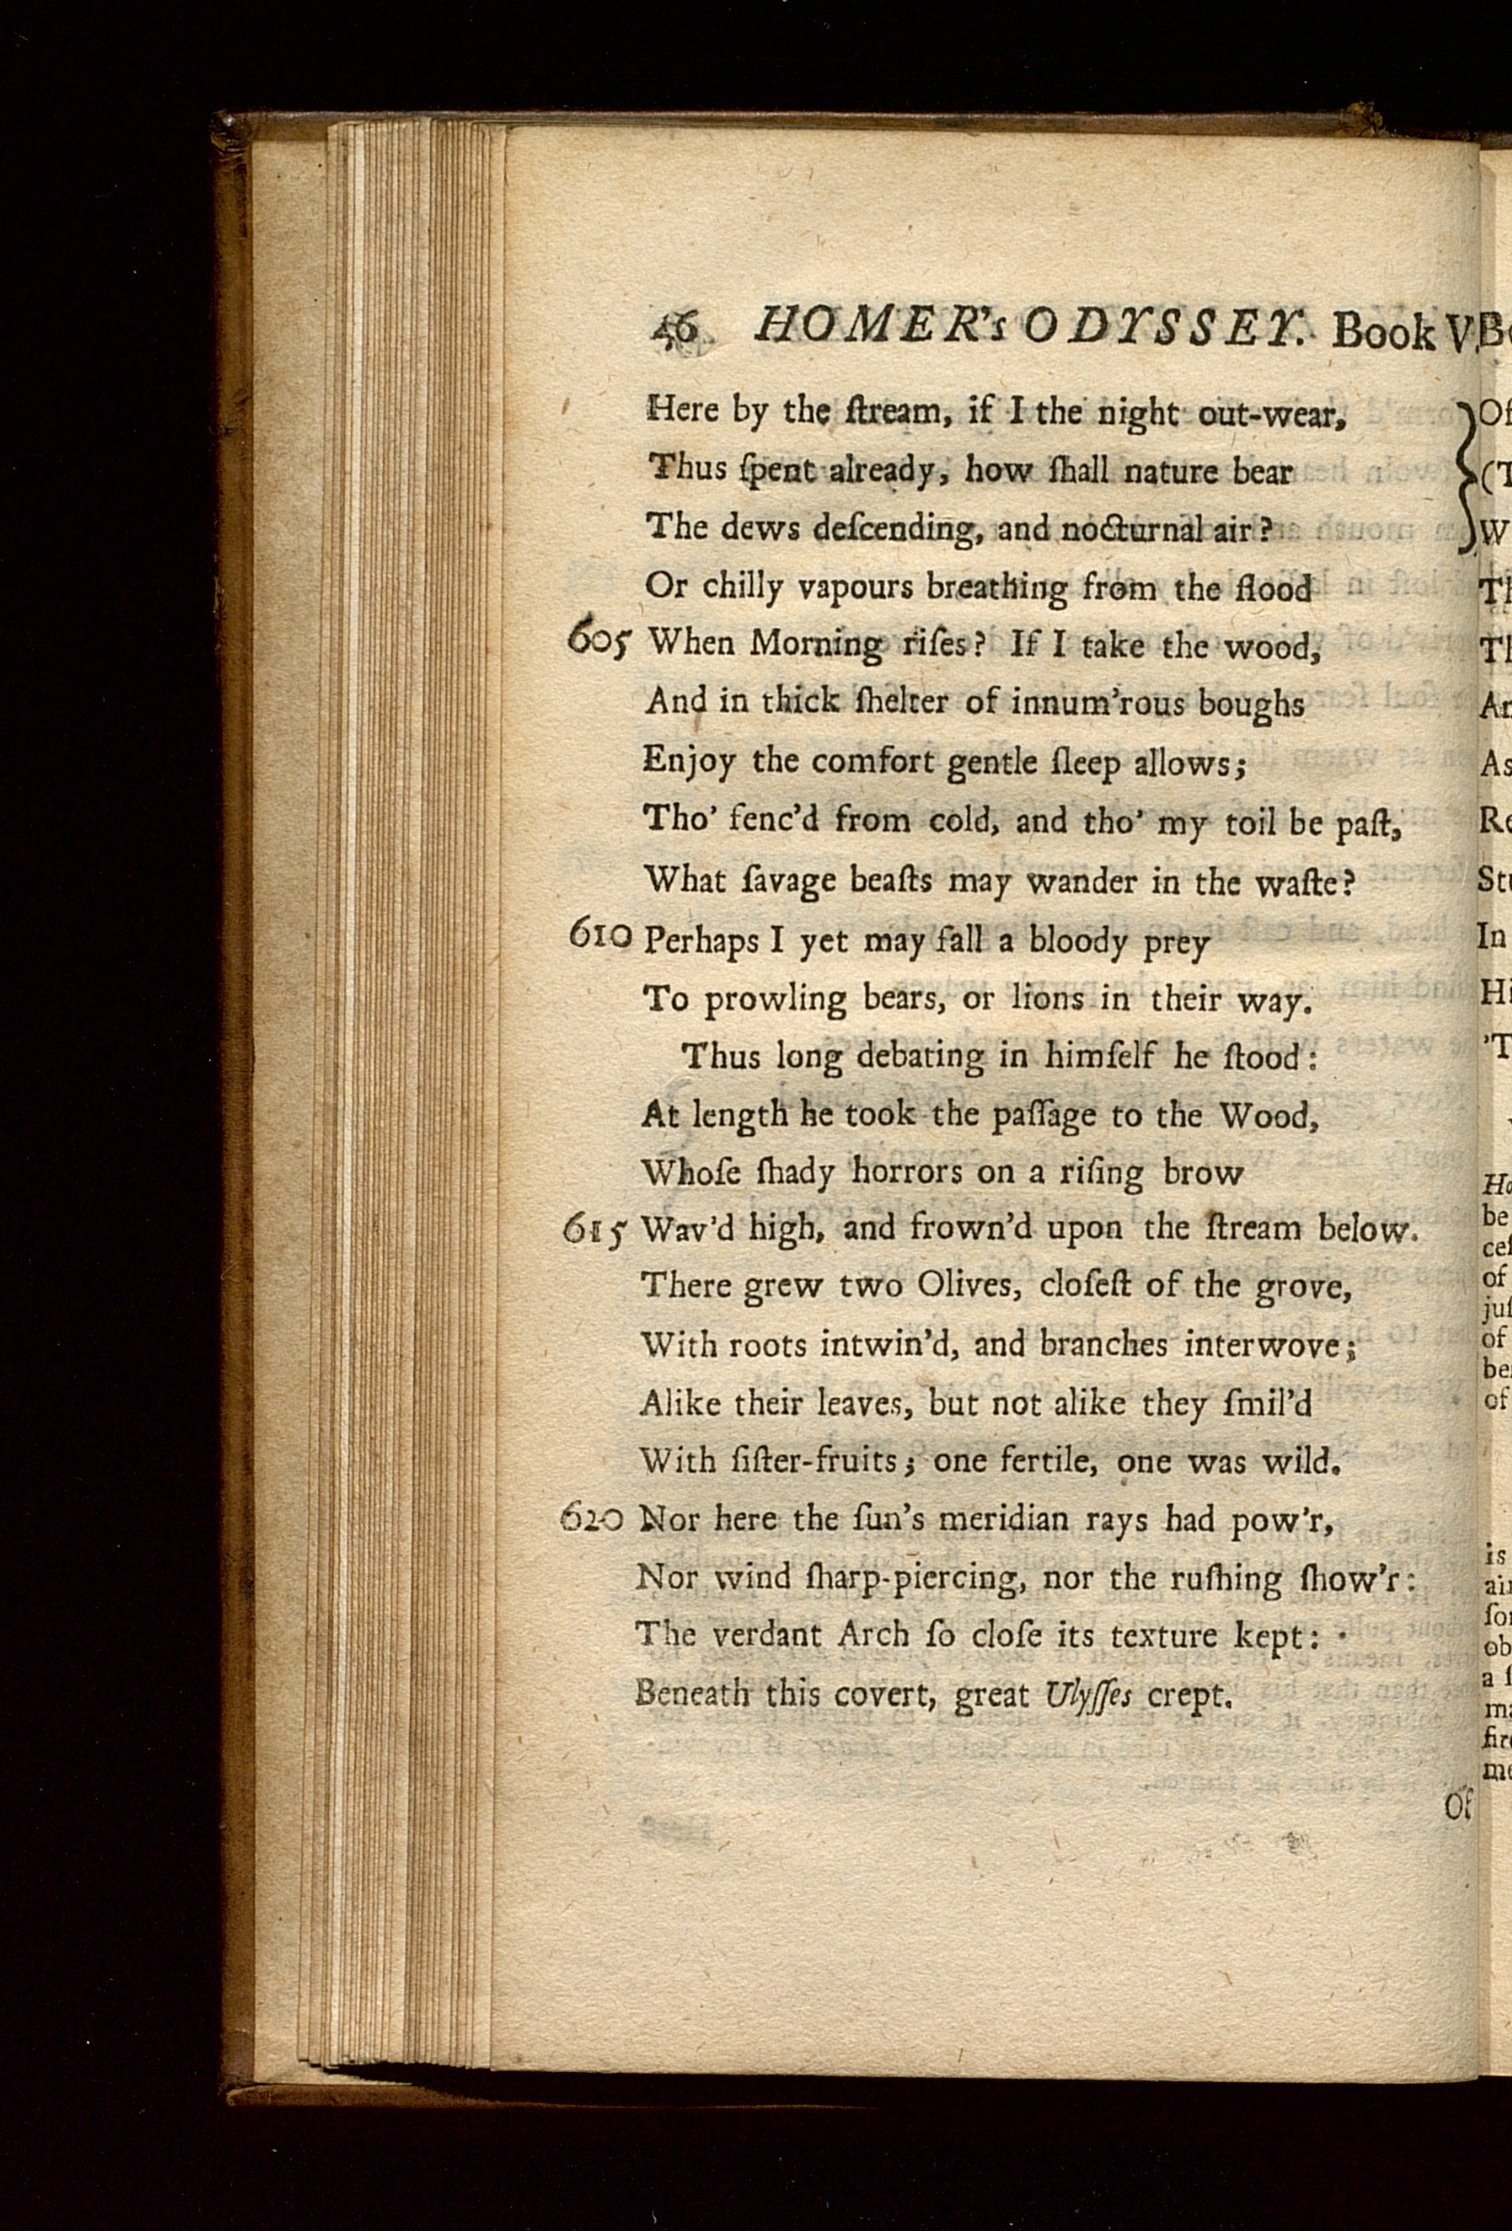 46 HOMER's ODYSSEY. Book V.
Here by the ſtream, if I the night out-wear,
Thus ſpent already, how ſhall nature bear
The dews deſcending, and nocturnal air?
Or chilly vapours breathing from the flood
605 When Morning riſes? If I take the wood,
And in thick ſhelter of innum'rous boughs
Enjoy the comfort gentle ſleep allows;
Tho' fenc'd from cold, and tho' my toil be paſt,
What ſavage beaſts may wander in the waſte?
610 Perhaps I yet may fall a bloody prey
To prowling bears, or lions in their way.
Thus long debating in himſelf he ſtood:
At length he took the paſſage to the Wood,
Whoſe ſhady horrors on a riſing brow
615 Wav'd high, and frown'd upon the ſtream below.
There grew two Olives, cloſeſt of the grove,
With roots intwin'd, and branches interwove;
Alike their leaves, but not alike they ſmil'd
With ſiſter-fruits; one fertile, one was wild.
620 Nor here the ſun's meridian rays had pow'r,
Nor wind ſharp-piercing, nor the ruſhing ſhow'r:
The verdant Arch ſo cloſe its texture kept:
Beneath this covert, great Ulyſſes crept.
Of